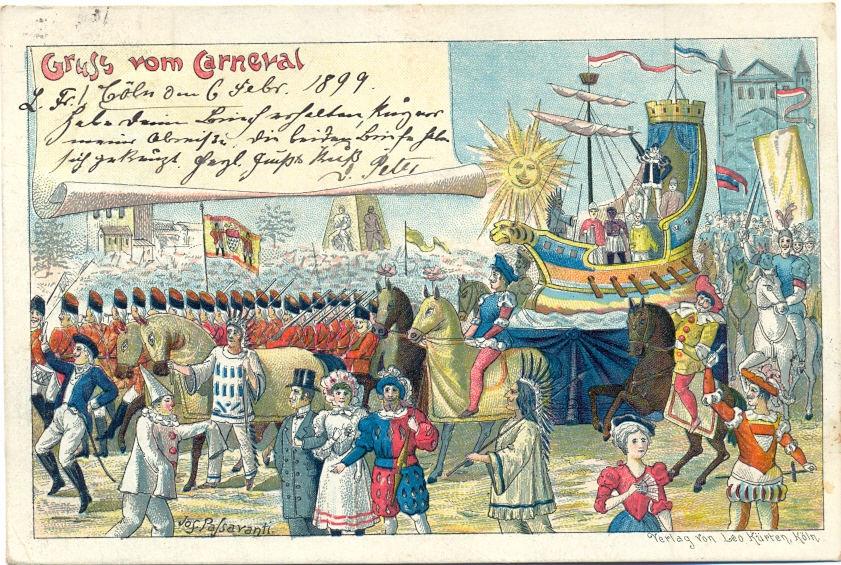 Gruss vom Carneval
L. Fr.! Cöln den 6 Febr. 1899.
Habe deinen Brief erhalten, kurz vor
meiner Abreise, die beiden Briefe haben
sich gekreuzt. Herzl. Gruß Kuß
Peter
Jos. Passavanti.
Verlag von Leo Kürten, Köln.